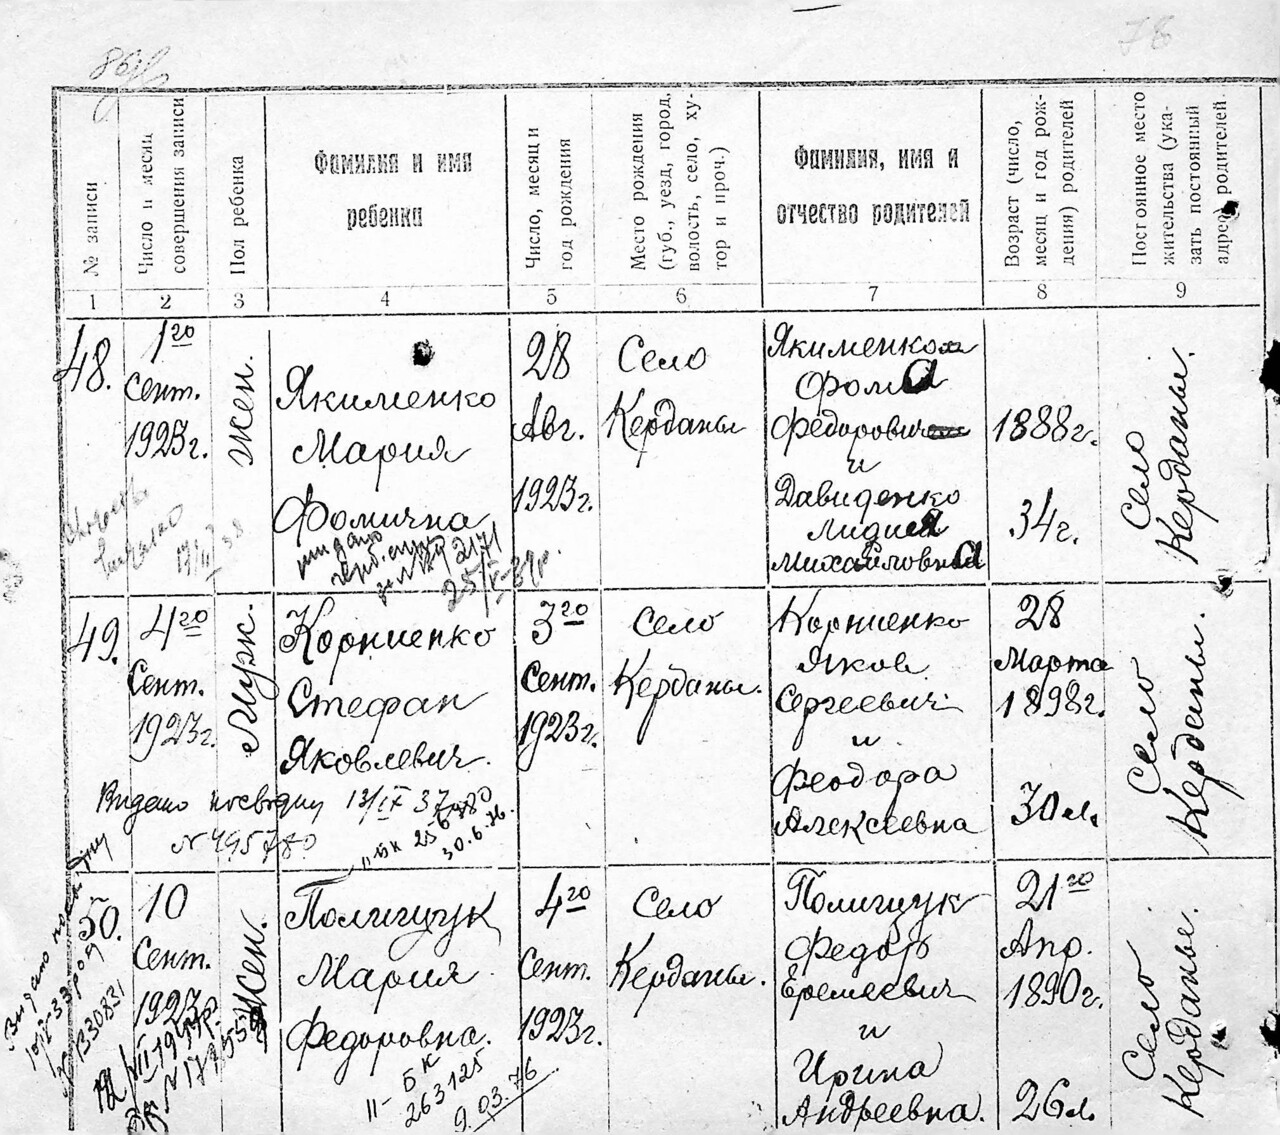 78
86
№ записи
Число и месяц
совершения записи
Пол ребенка
Фамилия и имя
ребенки
Число, месяц и
год рождения
Место рождения
(губ., уезд, город,
волость, село, ху-
тор и проч.)
Фамилия, имя и
отчество родителей
Возраст (число,
месяц и год рож-
дения) родителей
Постоянное место
жительства (ука-
зать постоянный
адрес) родителей.
1 2 3 4 5 6 7 8 9
48.
1го
Сент.
1923г.
жен.
Якименко
Мария
Фомична
28
Авг.
1923г.
Село
Керданы
Якименко
Фома
Федорович
и
Давиденко
Лидия
Михайловна
1888г.
34г.
Село
Керданы.
17/II 38
видано
2171
25/X-39р.
49.
4го
Сент.
1923г.
Муж.
Корниенко
Стефан
Яковлевич.
3го
Сент.
1923г.
Село
Керданы.
Корниенко
Яков
Сергеевич
и
Феодора
Алексеевна
28
Марта
1898г.
30л.
Село
Керданы.
Видано посвідку 13/IX 37
N 495780
II-БК 256780
30.6.76.
50.
10
Сент.
1923
жен.
Полищук
Мария
Федоровна.
4го
Сент.
1923г.
Село
Керданы.
Полищук
Федор
Еремеевич
и
Ирина
Андреевна.
21го
Апр.
1890г.
26л.
Село
Керданы.
Видано
330831
II-БК
263125
9.03.76